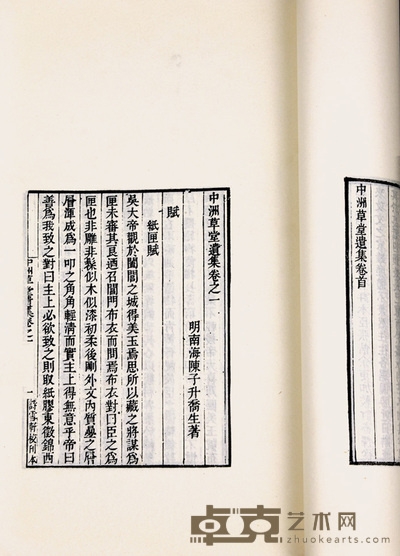 中洲草堂遺集卷首
中洲草堂遺集卷之一
明南海陳子升喬生著
賦
紙匣賦
吳大帝觀於闔閭之城得美玉焉思所以藏之將謀爲
匣未審其良迺召閶門布衣而問焉布衣對曰臣之爲
匣也非雕非髹似木似漆初柔後剛外文內質
層渾成爲一叩之角角輕淸而實主上得無意乎帝曰
善爲我致之對曰主上必欲致之則取紙膠東徵錦西
中洲草堂遺集卷之一
一
詩雪軒校刊本
卓克艺术网
www.zhuokearts.com